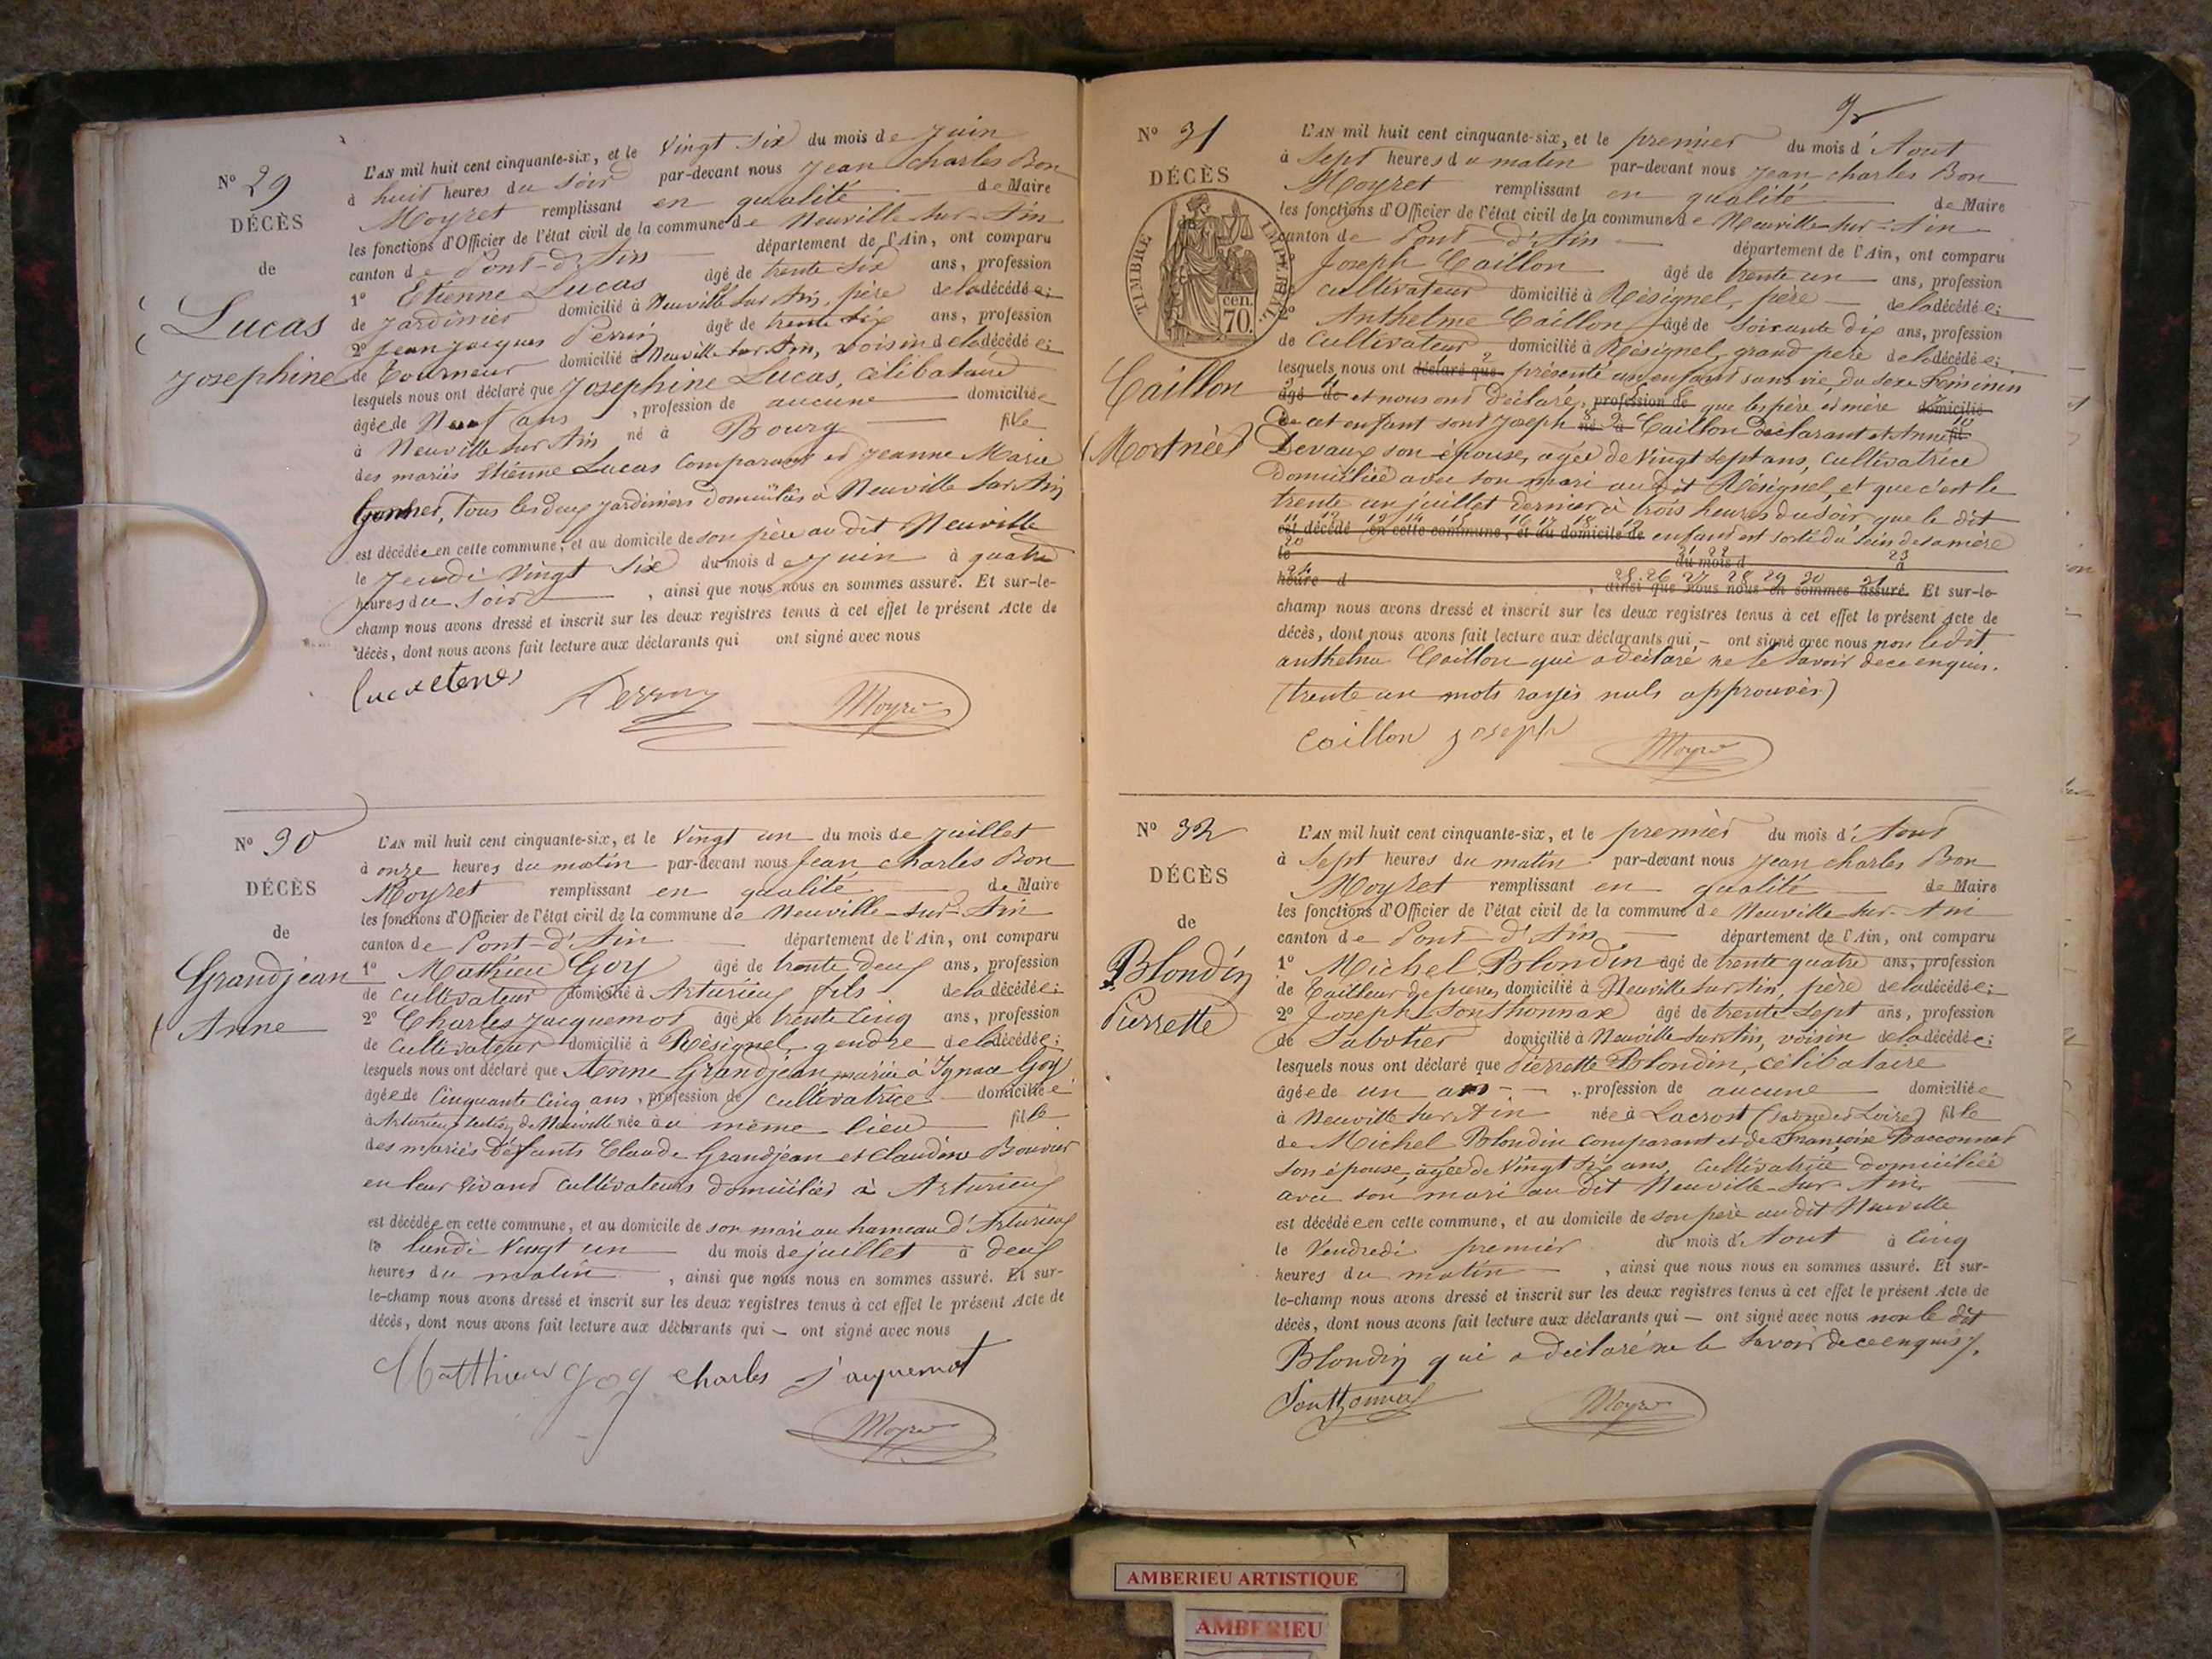 N° 29
DÉCÈS
de
Lucas
Josephine
L'AN mil huit cent cinquante-six, et le Vingt Six du mois de Juin
à huit heures du Soir par-devant nous Jean Charles Bon
Moyret remplissant en qualité de Maire
les fonctions d'Officier de l'état civil de la commune de Neuville sur-Ain
canton de Pont-d'Ain département de l'Ain, ont comparu
1° Etienne Lucas âgé de trente Six ans, profession
de Jardinier domicilié à Neuville sur Ain, père de la décédée;
2° Jean Jacques Perrin âgé de trente Six ans, profession
de Tourneur domicilié à Neuville sur Ain, voisin de la décédée;
lesquels nous ont déclaré que Josephine Lucas, célibataire
âgée de Neuf ans, profession de aucune domiciliée
à Neuville sur Ain né à Bourg fille
des mariés Etienne Lucas Comparant et Jeanne Marie
tous les deux Jardiniers domiciliés à Neuville sur Ain
est décédée en cette commune, et au domicile de son père au dit Neuville
le Jeudi Vingt Six du mois de Juin à quatre
heures du Soir, ainsi que nous nous en sommes assuré. Et sur-le-
champ nous avons dressé et inscrit sur les deux registres tenus à cet effet le présent Acte de
décès, dont nous avons fait lecture aux déclarants qui ont signé avec nous
Perrin Moyret
N° 30
DÉCÈS
de
Grandjean
Anne
L'AN mil huit cent cinquante-six, et le Vingt un du mois de Juillet
à onze heures du matin par-devant nous Jean Charles Bon
Moyret remplissant en qualité de Maire
les fonctions d'Officier de l'état civil de la commune de Neuville-sur-Ain
canton de Pont-d'Ain département de l'Ain, ont comparu
1° Mathieu Goy âgé de trente deux ans, profession
de Cultivateur domicilié à Arturieux fils de la décédée;
2° Charles Jacquemot âgé de trente cinq ans, profession
de Cultivateur domicilié à Résignel, gendre de la décédée;
lesquels nous ont déclaré que Anne Grandjean mariée à Ignace Goy
âgée de Cinquante Cinq ans, profession de cultivatrice domiciliée
à Arturieux section de Neuville née au même lieu fille
des mariés défunts Claude Grandjean et Claudine Bouvier
en leur vivant cultivateurs domiciliés à Arturieux
est décédée en cette commune, et au domicile de son mari au hameau d'Arturieux
le lundi Vingt un du mois de juillet à deux
heures du matin, ainsi que nous nous en sommes assuré. Et sur-
le-champ nous avons dressé et inscrit sur les deux registres tenus à cet effet le présent Acte de
décès, dont nous avons fait lecture aux déclarants qui — ont signé avec nous
Matthieu goy Charles jacquemot
Moyret
N° 31
DÉCÈS
TIMBRE IMPÉRIAL
70 cen.
Caillon
(Mort née)
L'AN mil huit cent cinquante-six, et le premier du mois d'Aout
à Sept heures du matin par-devant nous Jean Charles Bon
Moyret remplissant en qualité de Maire
les fonctions d'Officier de l'état civil de la commune de Neuville-sur-Ain
canton de Pont-d'Ain département de l'Ain, ont comparu
Joseph Caillon âgé de trente un ans, profession
cultivateur domicilié à Résignel, père de la décédée;
2° Anthelme Caillon âgé de soixante dix ans, profession
de Cultivateur domicilié à Résignel, grand père de la décédée;
lesquels nous ont déclaré que présenté un enfant sans vie, du sexe Féminin
âgé de et nous ont déclaré, profession de que les père et mère domicilié
de cet enfant sont Joseph né à Caillon déclarant et Anne fil
Devaux son épouse, agée de Vingt Sept ans, cultivatrice
domiciliée avec son mari au dit Résignel, et que c'est le
trente un juillet dernier à trois heures du soir, que le dit
est décédé en cette commune, et au domicile de enfant est sorti du sein de sa mère
le du mois d à
heure d , ainsi que nous nous en sommes assuré. Et sur-le-
champ nous avons dressé et inscrit sur les deux registres tenus à cet effet le présent Acte de
décès, dont nous avons fait lecture aux déclarants qui, — ont signé avec nous non le dit
anthelme Caillon qui a déclaré ne le savoir de ce enquis.
(trente un mots rayés nuls approuvés)
Caillon joseph Moyret
N° 32
DÉCÈS
de
Blondin
Pierrette
L'AN mil huit cent cinquante-six, et le premier du mois d'Aout
à Sept heures du matin par-devant nous Jean Charles Bon
Moyret remplissant en qualité de Maire
les fonctions d'Officier de l'état civil de la commune de Neuville-sur-Ain
canton de Pont-d'Ain département de l'Ain, ont comparu
1° Michel Blondin âgé de trente quatre ans, profession
de tailleur de pierres domicilié à Neuville sur Ain, père de la décédée;
2° Joseph Sonthonnax âgé de trente Sept ans, profession
de Sabotier domicilié à Neuville sur Ain, voisin de la décédée;
lesquels nous ont déclaré que Pierrette Blondin, célibataire
âgée de un an, profession de aucune domiciliée
à Neuville sur Ain née à Lacrost (Saône et Loire) fille
de Michel Blondin comparant et de Françoise
son épouse, agée de Vingt Six ans, cultivatrice domiciliée
avec son mari au dit Neuville-sur-Ain
est décédée en cette commune, et au domicile de son père au dit Neuville
le Vendredi premier du mois d'Aout à Cinq
heures du matin, ainsi que nous nous en sommes assuré. Et sur-
le-champ nous avons dressé et inscrit sur les deux registres tenus à cet effet le présent Acte de
décès, dont nous avons fait lecture aux déclarants qui — ont signé avec nous non le dit
Blondin qui a déclaré ne le savoir de ce enquis.
Sonthonnax Moyret
AMBERIEU ARTISTIQUE
AMBERIEU